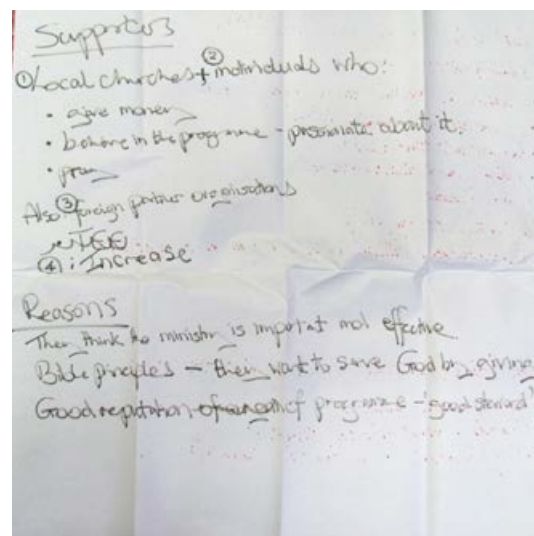 Supporters
① Local churches + ② individuals who:
• give money
• believe in the programme - passionate about it.
• pray
Also ③ foreign partner organisations
④ : Increase
Reasons
They think the ministry is important and effective
Bible principles - they want to serve God by giving
Good reputation of programme - "good steward"